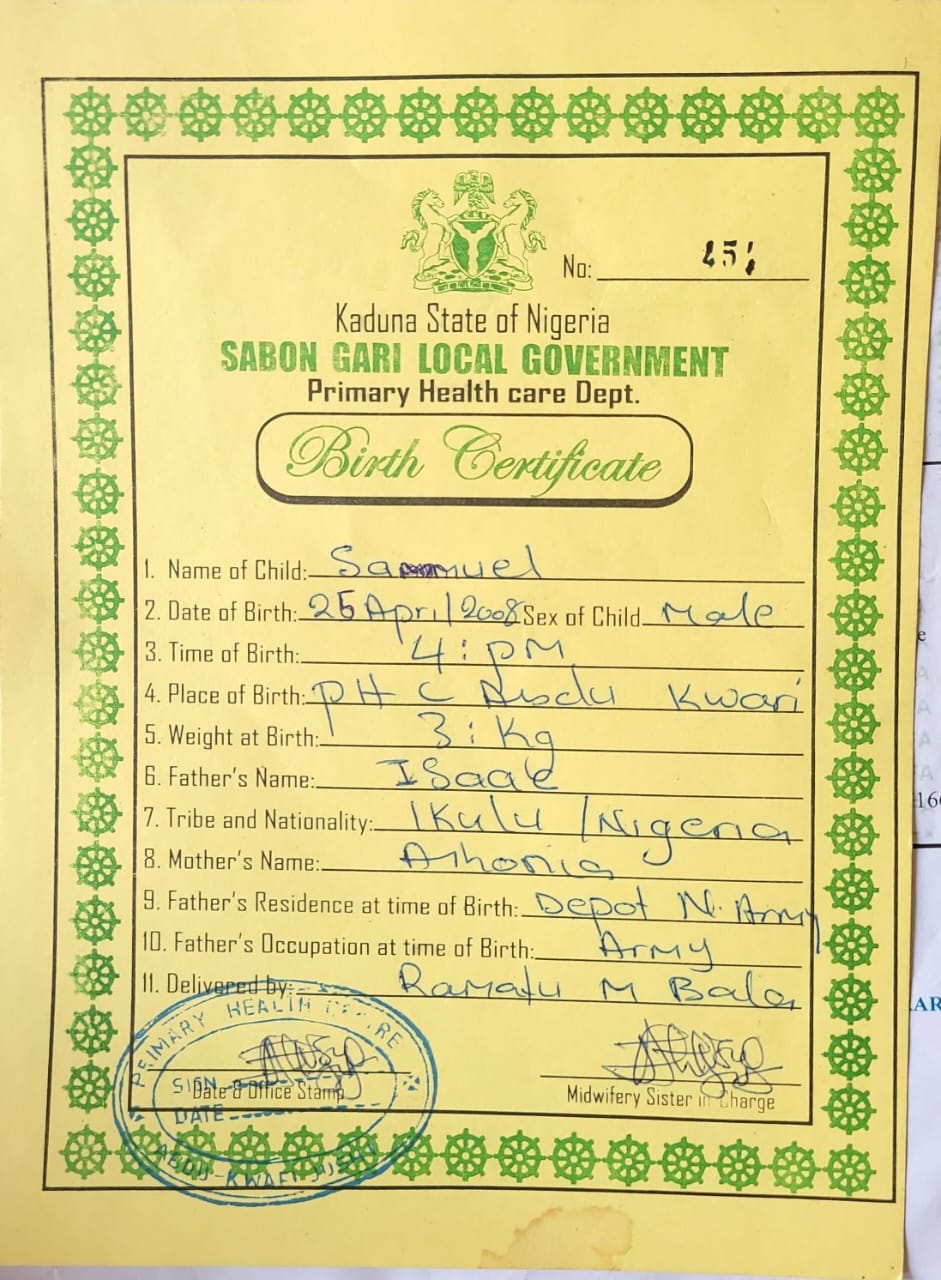 No: 451
Kaduna State of Nigeria
SABON GARI LOCAL GOVERNMENT
Primary Health care Dept.
Birth Certificate
1. Name of Child: Sammuel
2. Date of Birth: 25 April/2008 Sex of Child Male
3. Time of Birth: 4: PM
4. Place of Birth: PHC Abdu Kwari
5. Weight at Birth: 3: Kg
6. Father's Name: Isaac
7. Tribe and Nationality: Ikulu /Nigeria
8. Mother's Name:
9. Father's Residence at time of Birth: Depot N. Army
10. Father's Occupation at time of Birth: Army
11. Delivered by: Ramatu M Bala
PRIMARY HEALTH CENTRE
SIGN
Date & Office Stamp
DATE
Midwifery Sister in Charge